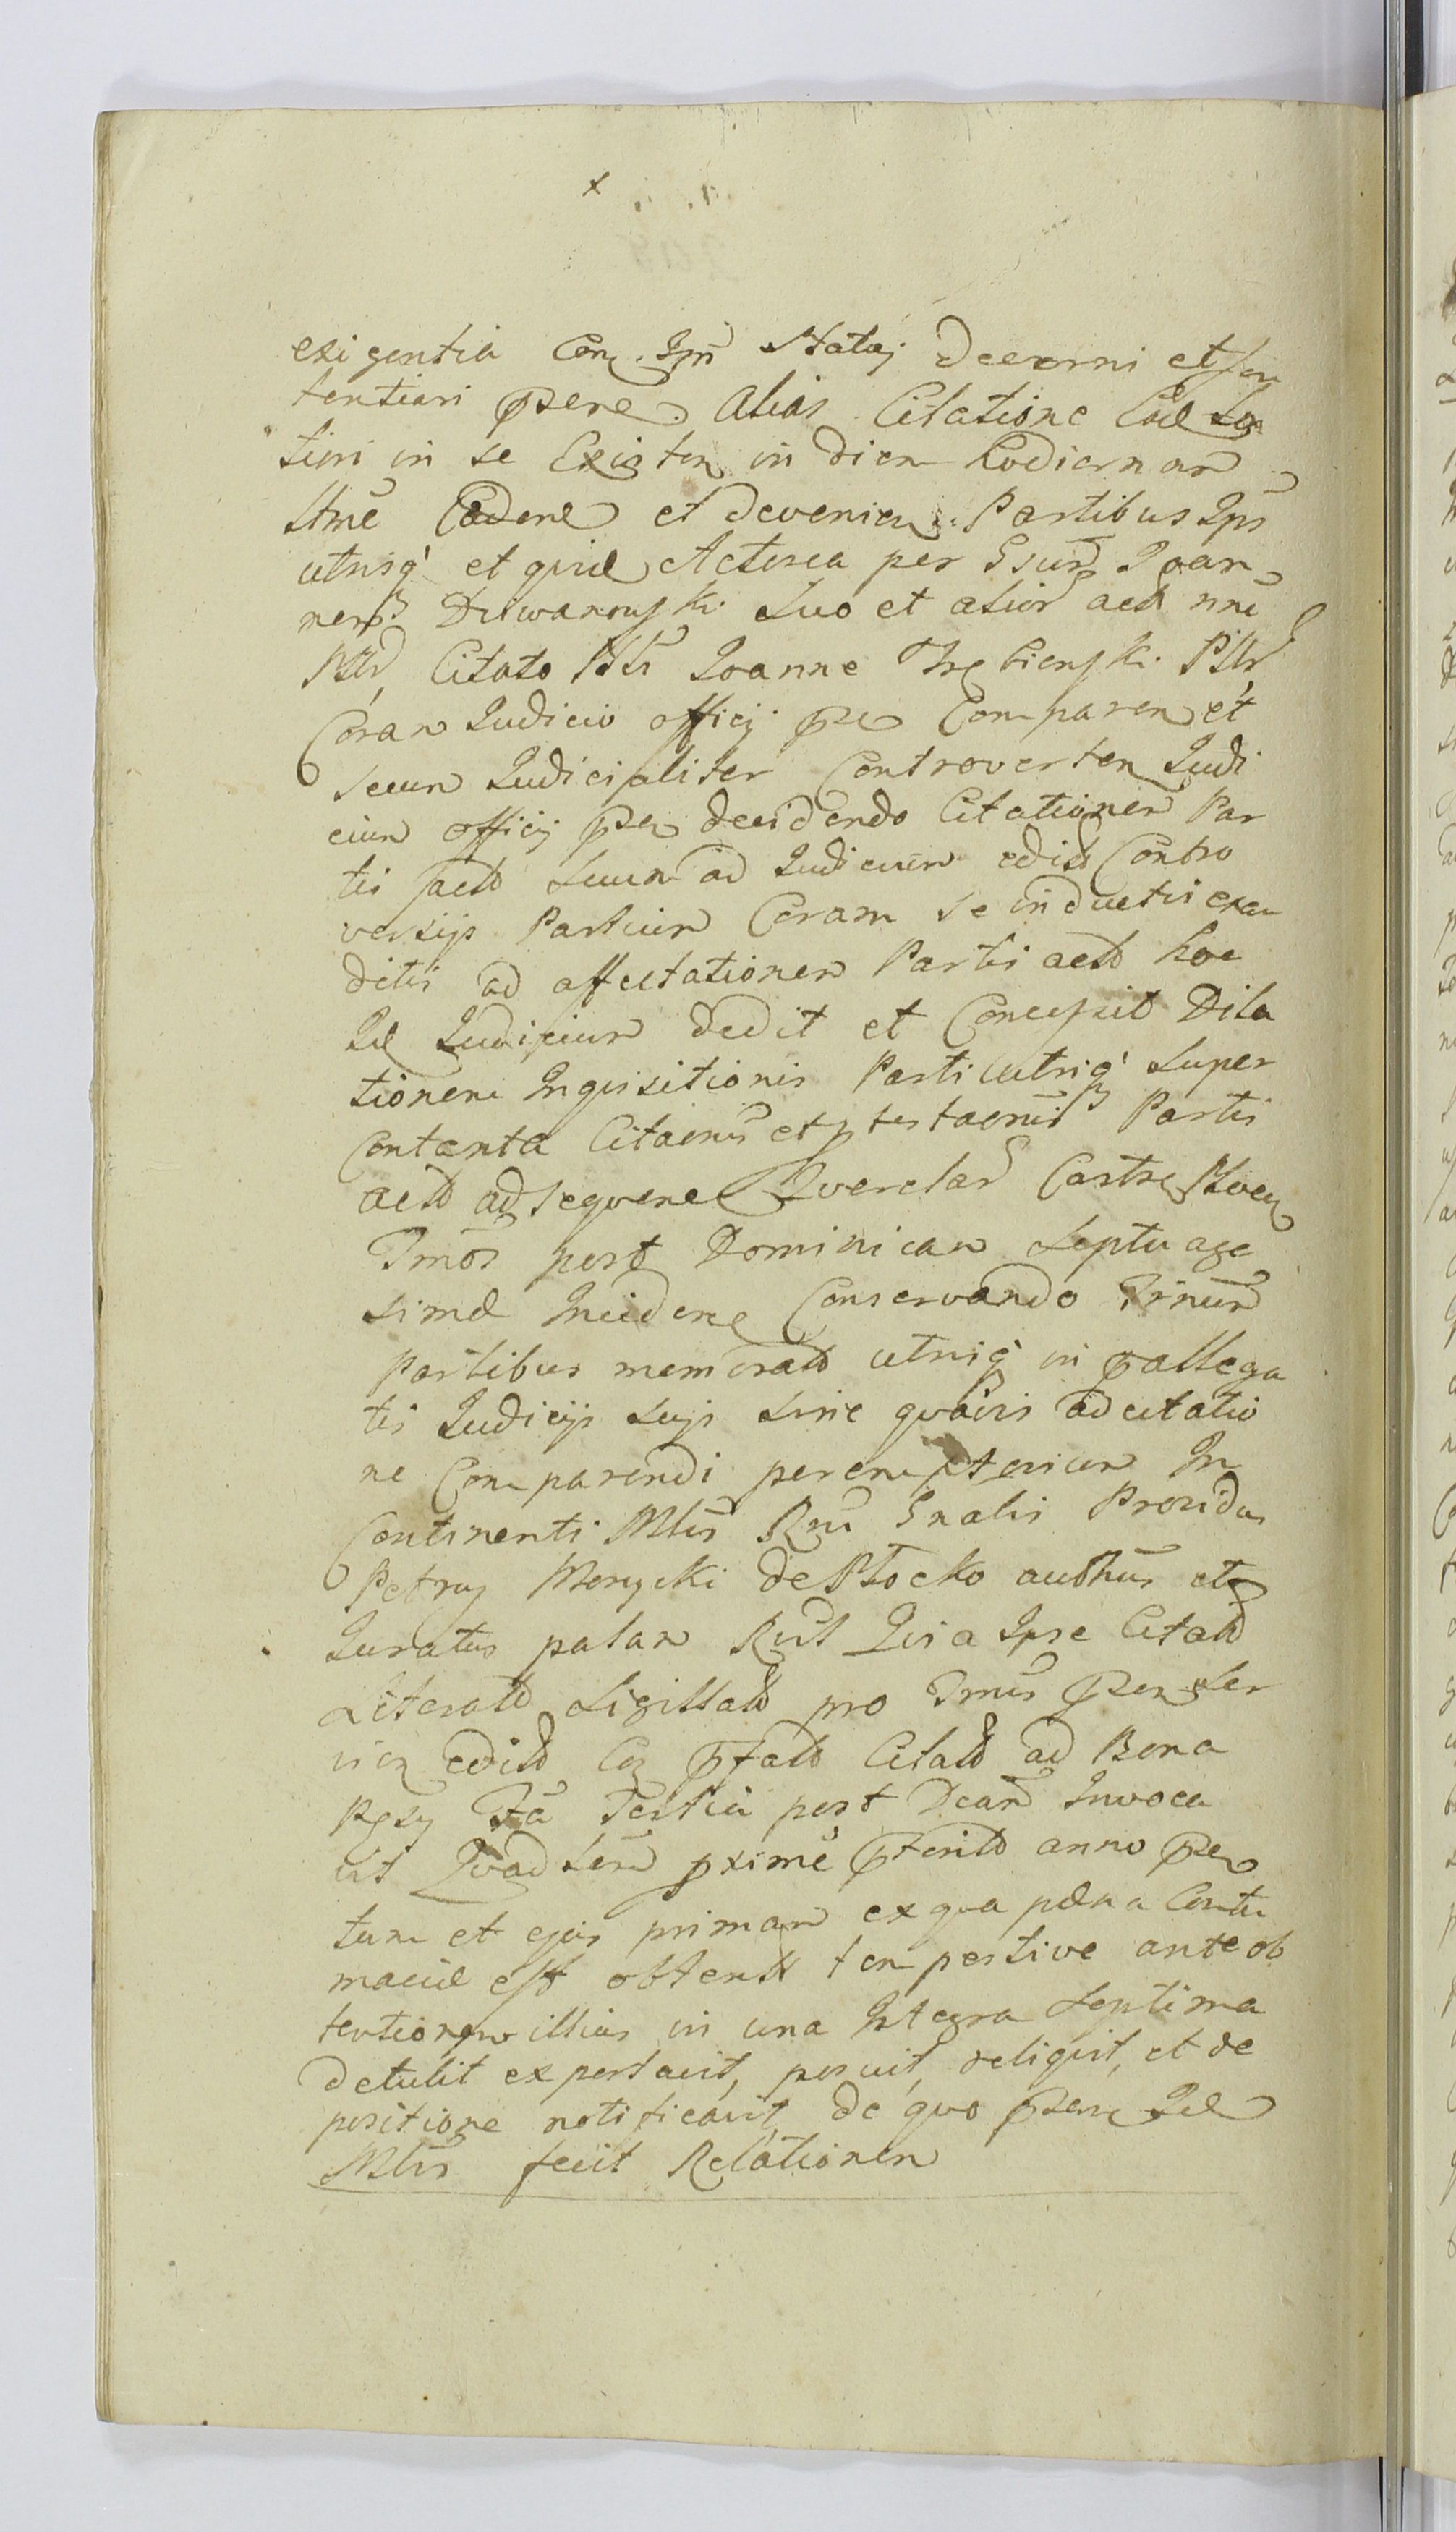 x
exigentia Conq Ipū Statūj decerni et sen
tentiari pſene. Alias Citatione Coæ La
tiori in se Existen in diem hodiernam
ſtme Cadene et devenien. Partibus Ipis
utrisq et quidē Actorea per Gsum Joan
nem Driwanowski suo et alior act nrē
Citato Joanne
Coram Judicio officij pſe Comparen et
secum Judicialiter Controverten Judi
cium officij pſen decidendo Citationem Par
tis act suum ad Judicium edit Contro
versijs Partium Coram se inductis exau
ditis ad affectationem Partis act hoc
Id Judicium dedit et Concessit Dila
tionem Inquisitionis Parti utriq super
contenta Citaōnis et ptestaōnis Partis
act ad sequene Querelar Castrē Plocen
Tmos post Dominicam Septuage
simæ Incidene Conservando Trnum
Partibus memorat utrisq in pallega
tis Judicijs suis sine quavis adcitatio
ne Comparendi peremptorium In
Continenti Mtris Rni Gnalis Providus
Petrus Morycki de Plocko authus et
Juratus palam Rlt Quia Ipse Citat
Literat Sigillat pro Tmis pſen ser
vien edit Coq pfat Citat ad Bona
Fa Tertia post Dcam Invoca
vit Quad sen pxime pterit anno pſen
tum et ejus primam ex qua pæna Contu
maciæ est obtent tempestive ante ob
tentionem illius in una Integra septima
detulit exportavit, posuit, reliquit, et de
positione notificavit de quo pſene Id
Mtris fecit Relationem